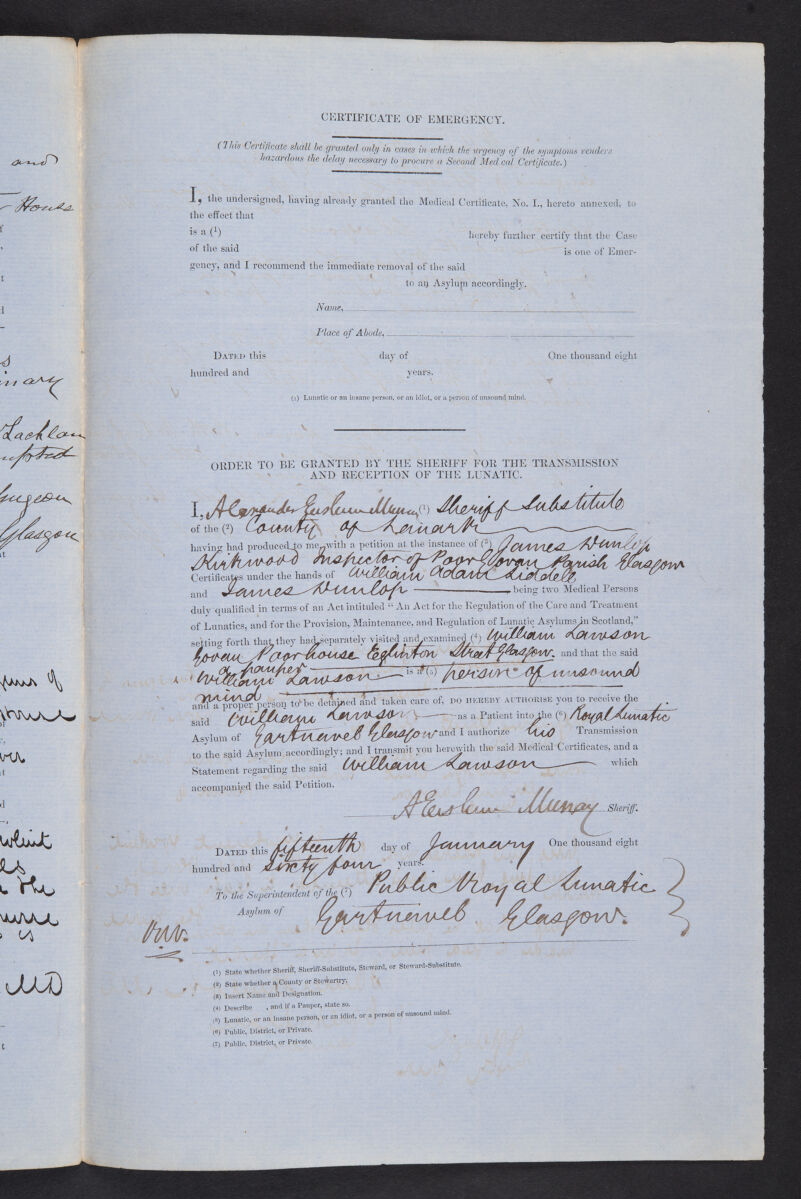 and
House
inary
Lachlan
Surgeon
Glasgow
of
the
is
MD
CERTIFICATE OF EMERGENCY.
(This Certificate shall be granted only in cases in which the urgency of the symptoms renders
hazardous the delay necessary to procure a Second Medical Certificate.)
I, the undersigned, having already granted the Medical Certificate, No. I., hereto annexed, to
the effect that
is a (1) hereby further certify that the Case
of the said is one of Emer-
gency, and I recommend the immediate removal of the said
to an Asylum accordingly.
Name,
Place of Abode,
DATED this day of One thousand eight
hundred and years.
(1) Lunatic or an insane person, or an idiot, or a person of unsound mind.
ORDER TO BE GRANTED BY THE SHERIFF FOR THE TRANSMISSION
AND RECEPTION OF THE LUNATIC.
I, Alexander Erskine Murray (1) Sheriff Substitute
of the (2) County of Lanark
having had produced to me, with a petition at the instance of (3) James Dunlop
Kirkwood Inspector of Poor Govan Parish Glasgow
Certificates under the hands of William Adam Liddell
and James Dunlop being two Medical Persons
duly qualified in terms of an Act intituled "An Act for the Regulation of the Care and Treatment
of Lunatics, and for the Provision, Maintenance, and Regulation of Lunatic Asylums in Scotland,"
setting forth that they had separately visited and examined (4) William Lawson
Govan Poorhouse Eglinton Street Glasgow. and that the said
a pauper
William Lawson is a (5) person of unsound
mind
and a proper person to be detained and taken care of, DO HEREBY AUTHORISE you to receive the
said William Lawson as a Patient into the (6) Royal Lunatic
Asylum of Gartnavel Glasgow and I authorize his Transmission
to the said Asylum accordingly; and I transmit you herewith the said Medical Certificates, and a
Statement regarding the said William Lawson which
accompanied the said Petition.
A Erskine Murray Sheriff.
DATED this fifteenth day of January One thousand eight
hundred and sixty four years.
To the Superintendent of the (7) Public Royal Lunatic
Asylum of Gartnavel Glasgow.
(1) State whether Sheriff, Sheriff-Substitute, Steward, or Steward-Substitute.
(2) State whether a County or Stewartry.
(3) Insert Name and Designation.
(4) Describe , and if a Pauper, state so.
(5) Lunatic, or an insane person, or an idiot, or a person of unsound mind.
(6) Public, District, or Private.
(7) Public, District, or Private.